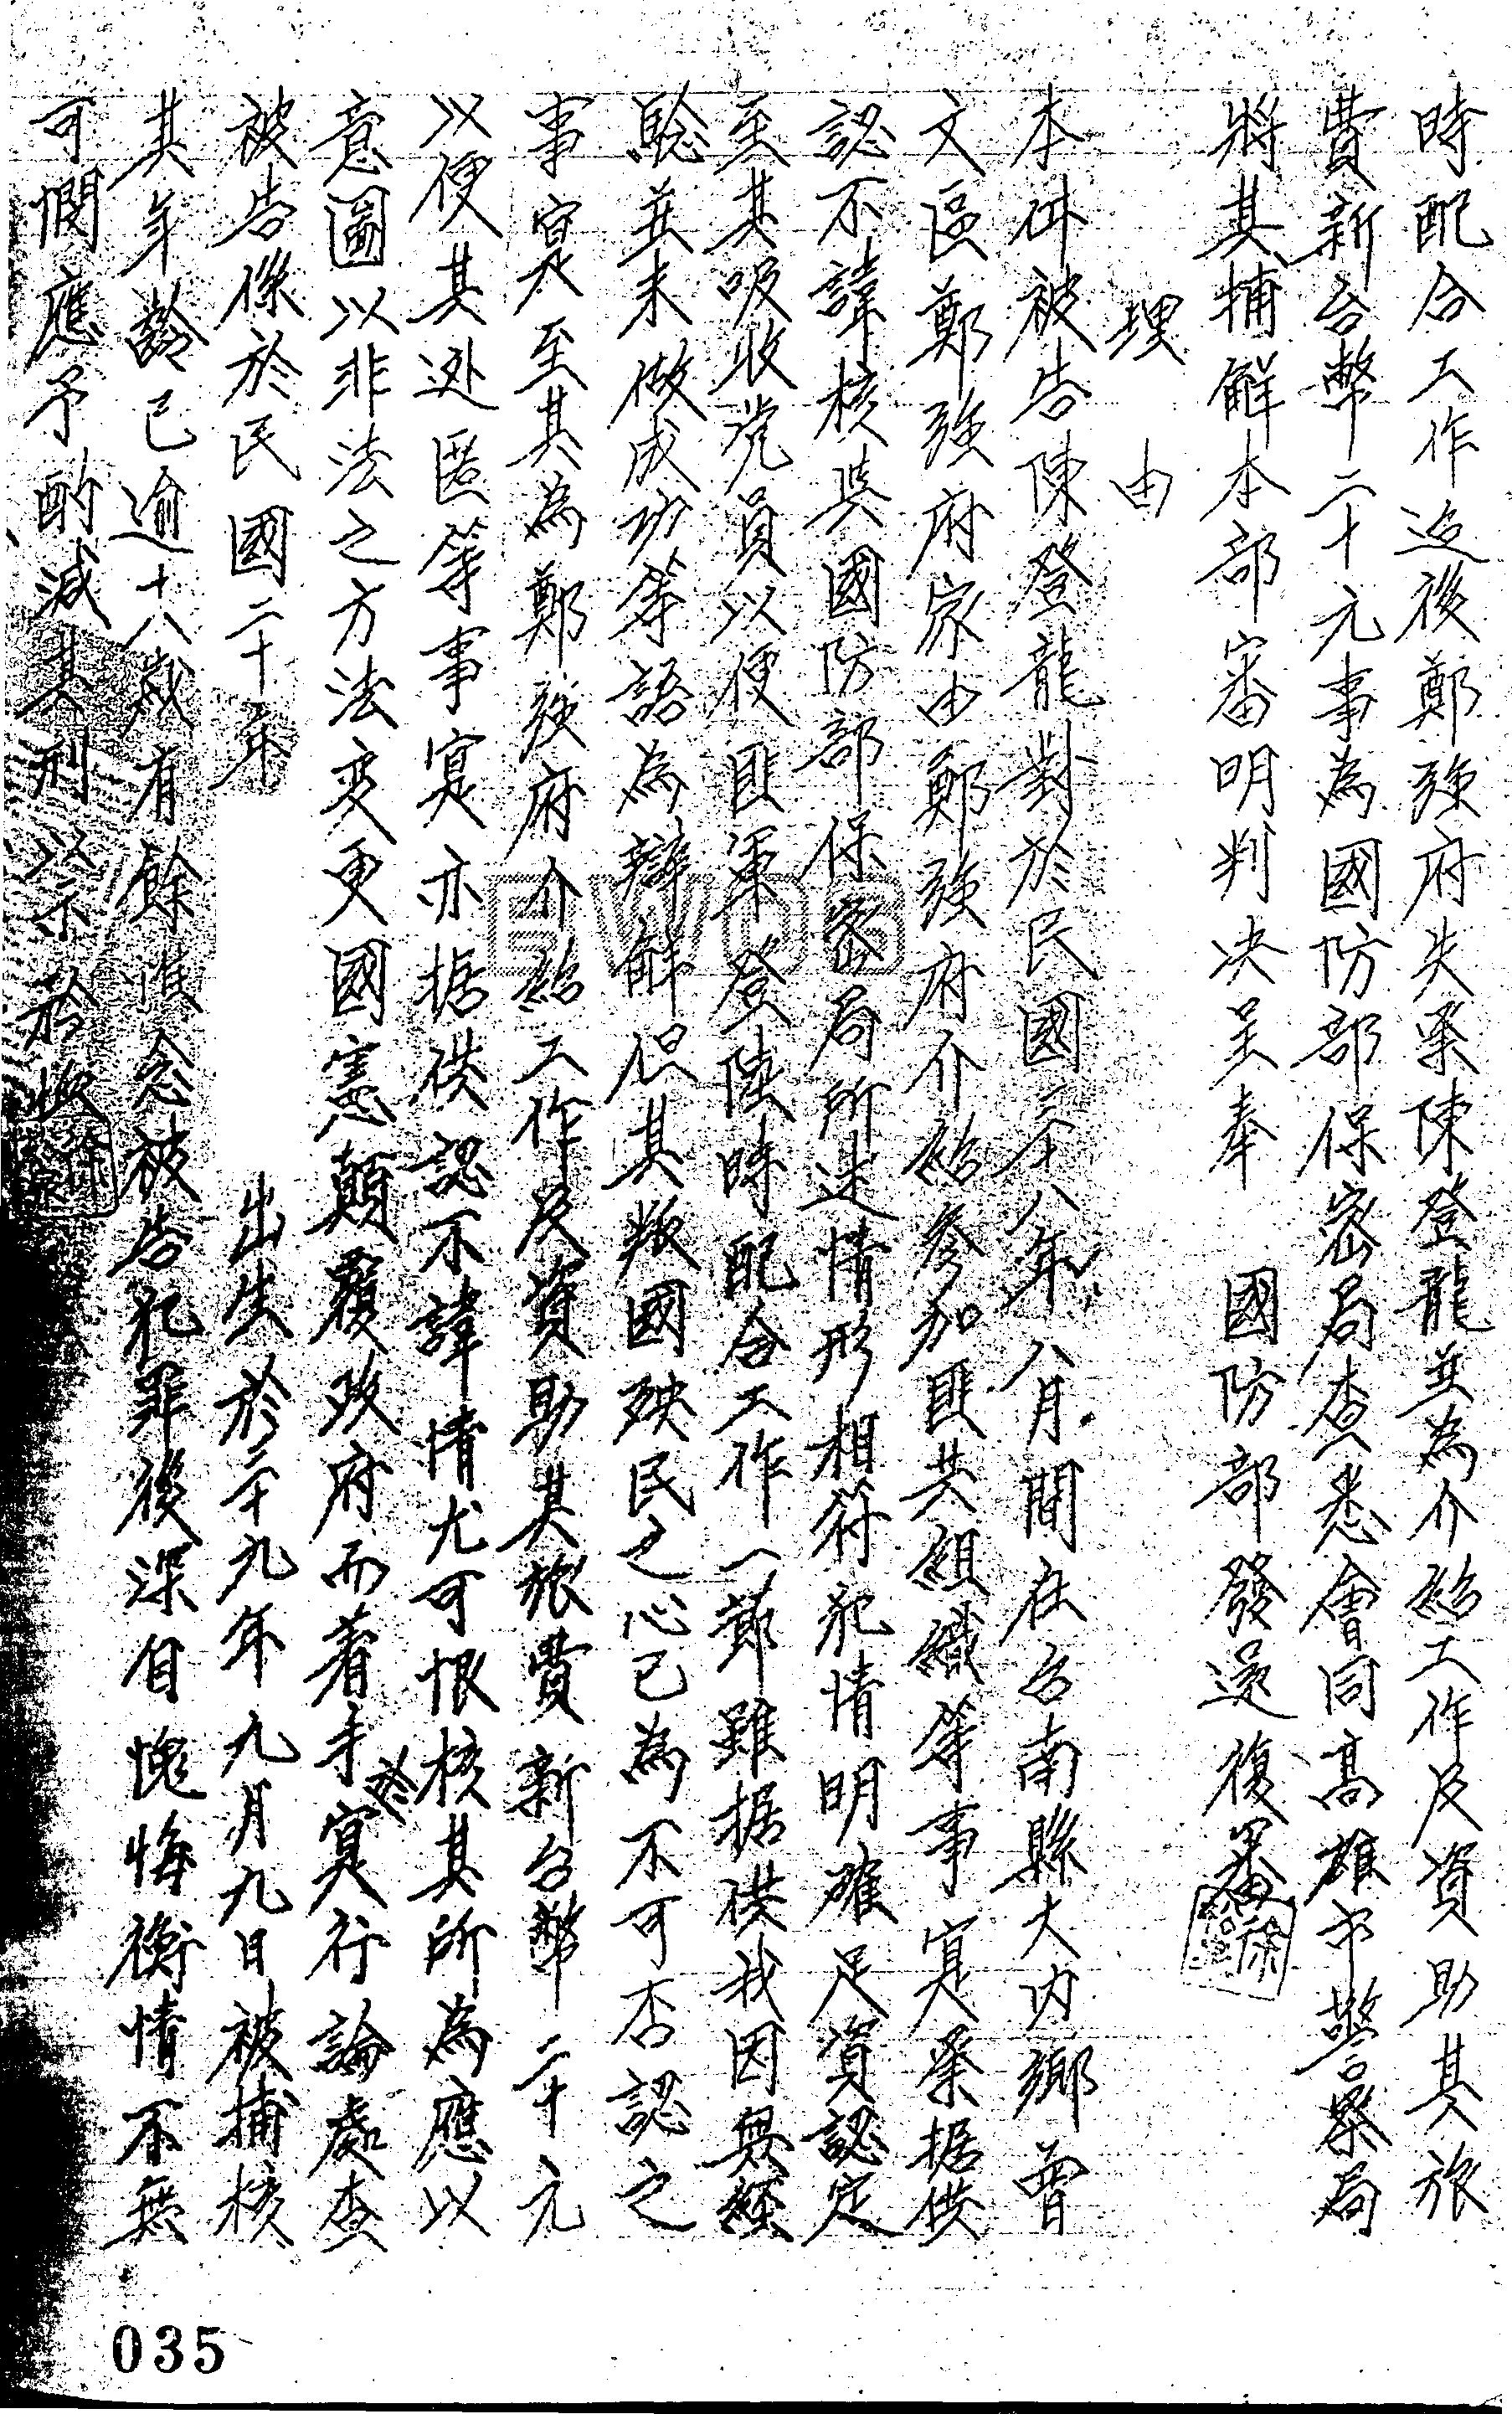 時配合工作迨後鄭強府失渠陳登龍並為介紹工作及資助其旅
費新台幣二十元事為國防部保密局查悉會同高雄市警察局
將其捕解本部審明判決呈奉　國防部發還復審
理由
本件被告陳登龍對於民國三十八年八月間在台南縣大內鄉曾
文區鄭強府家由鄭強府介紹參加匪共組織等事寔業據供
認不諱核與國防部保密局所述情形相符犯情明確足資認定
至其吸收党員以便匪軍登陸時配合工作一節雖据供我因無經
騐並未做成功等語為辯解但其叛國殃民之心已為不可否認之
事寔至其為鄭強府介紹工作及資助其旅費新台幣二十元
以便其逃匿等事寔亦据供認不諱情尤可恨核其所為應以
意圖以非法之方法变更國憲顛覆政府而著手於寔行論處查
被告係於民國二十年　出生於三十九年九月九日被捕核
其年齡已逾十八歲有餘惟念被告犯罪後深自愧悔衡情不無
可憫應予酌減其刑以示矜恤
徐
徐
EWDS
035